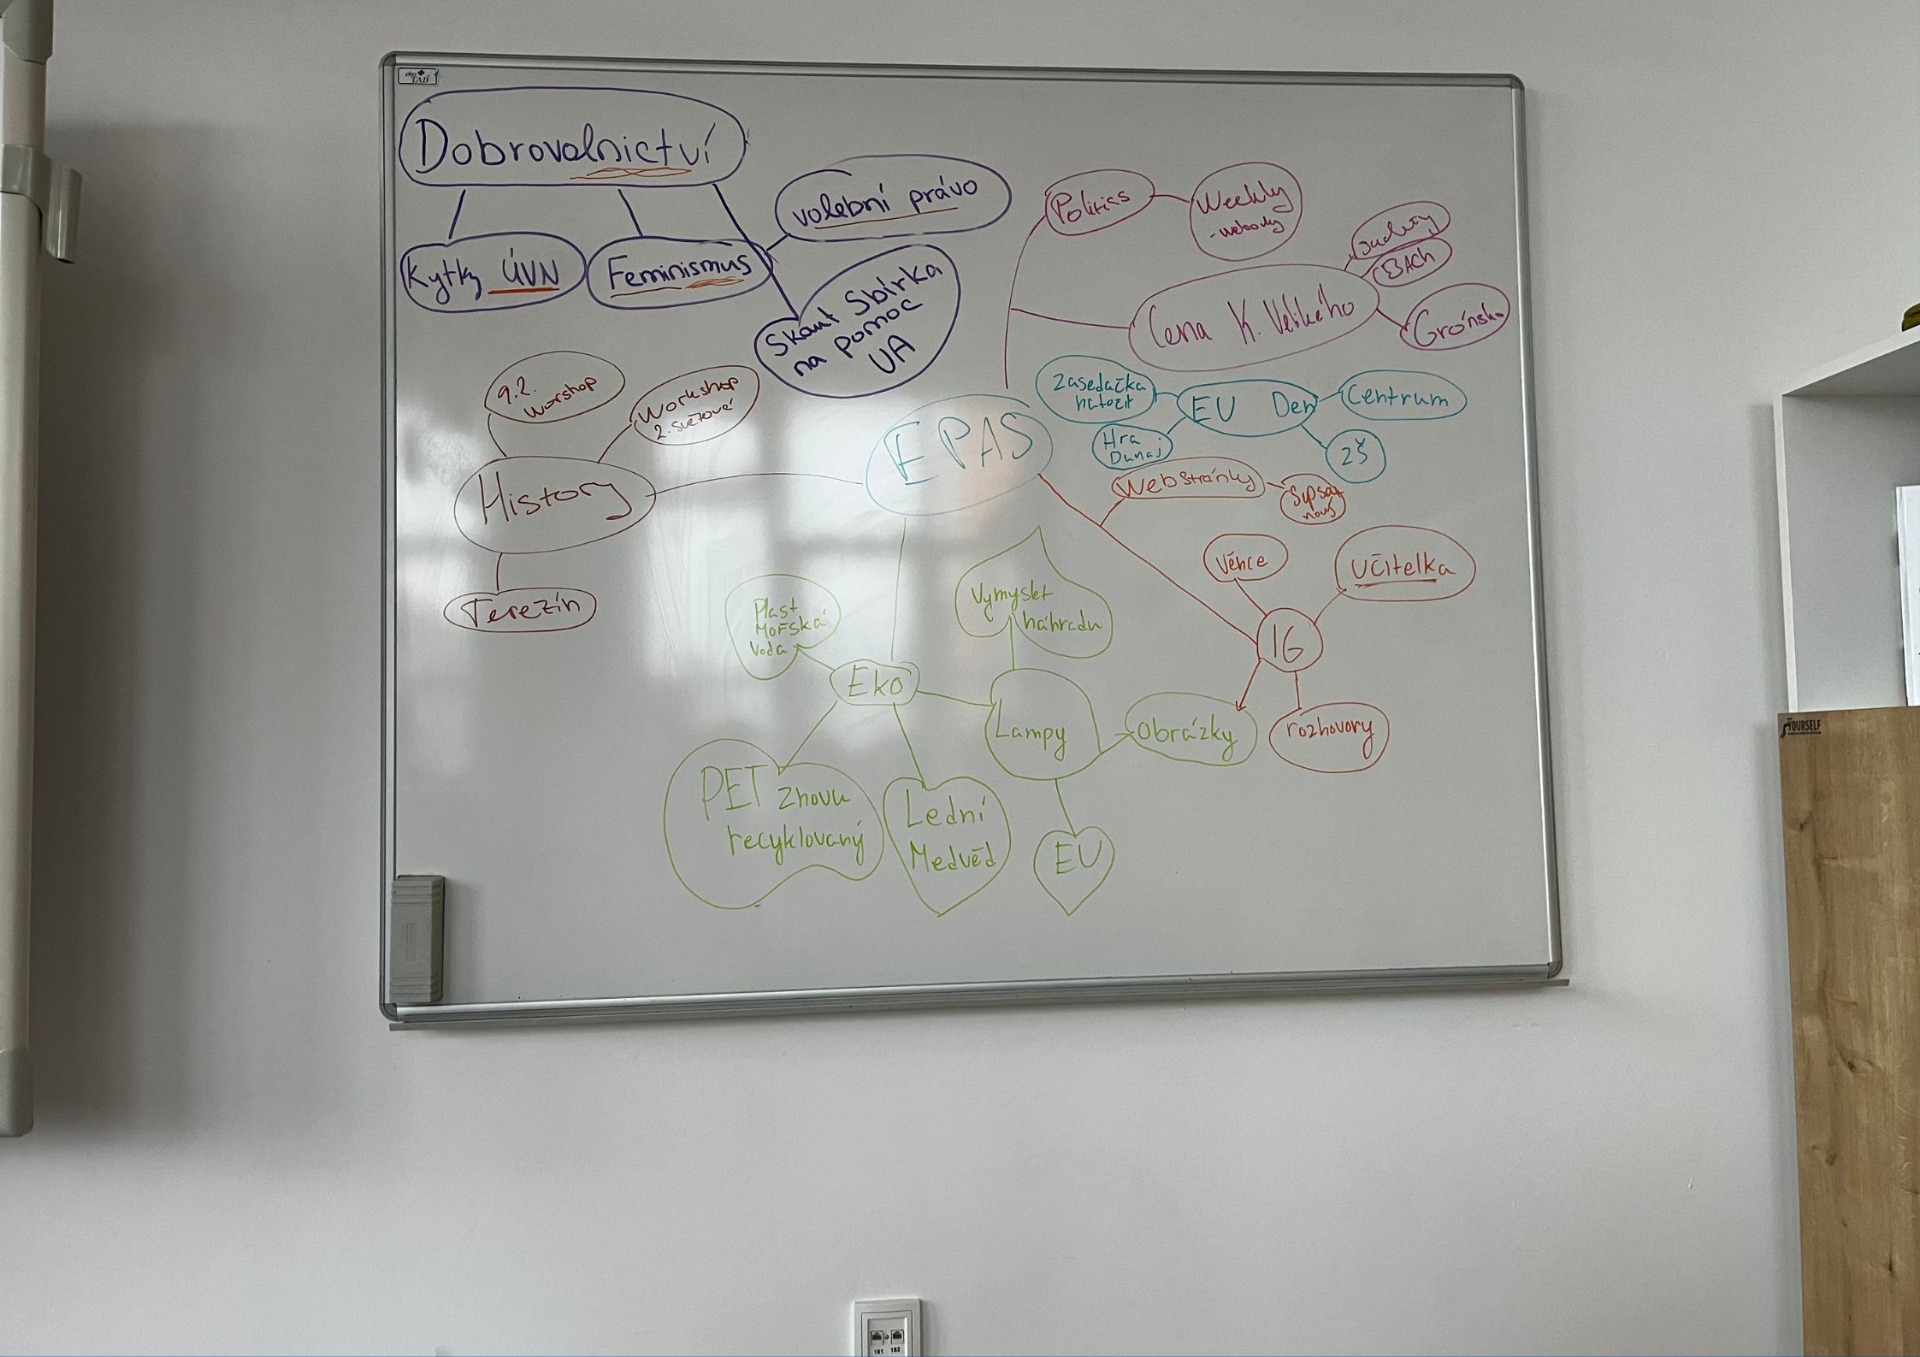 Dobrovolnictví
Kytky ÚVN
Feminismus
volební právo
Skaut Sbírka
na pomoc
UA
Politics
Weekly
Cena K. Velikého
BACh
Grónsko
EPAS
Zasedačka
natočit
EU Den
Centrum
Hra
Dunaj
ZŠ
Web stránky
nový
Věnce
Učitelka
IG
rozhovory
Obrázky
9.2.
Worshop
Workshop
2. světové
History
Terezín
Plast
Mořská
Voda
Vymyslet
náhradu
Eko
Lampy
PET znovu
recyklovaný
Lední
Medvěd
EU
YOURSELF